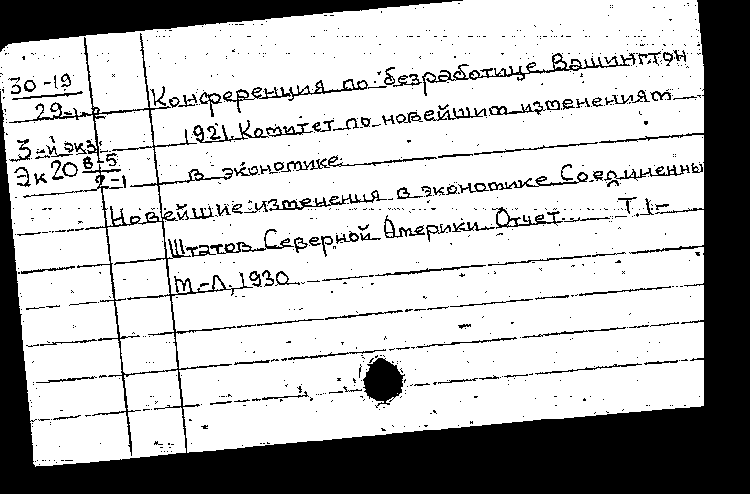 30-19
29-1-2
3-й экз.
Эк 20 8-5
9-1
Конференция по безработице Вашингтон
1921. Комитет по новейшим изменениям
в экономике
Новейшие изменения в экономике Соединенны
Штатов Северной Америки Отчет... Т. 1-
М.-Л., 1930